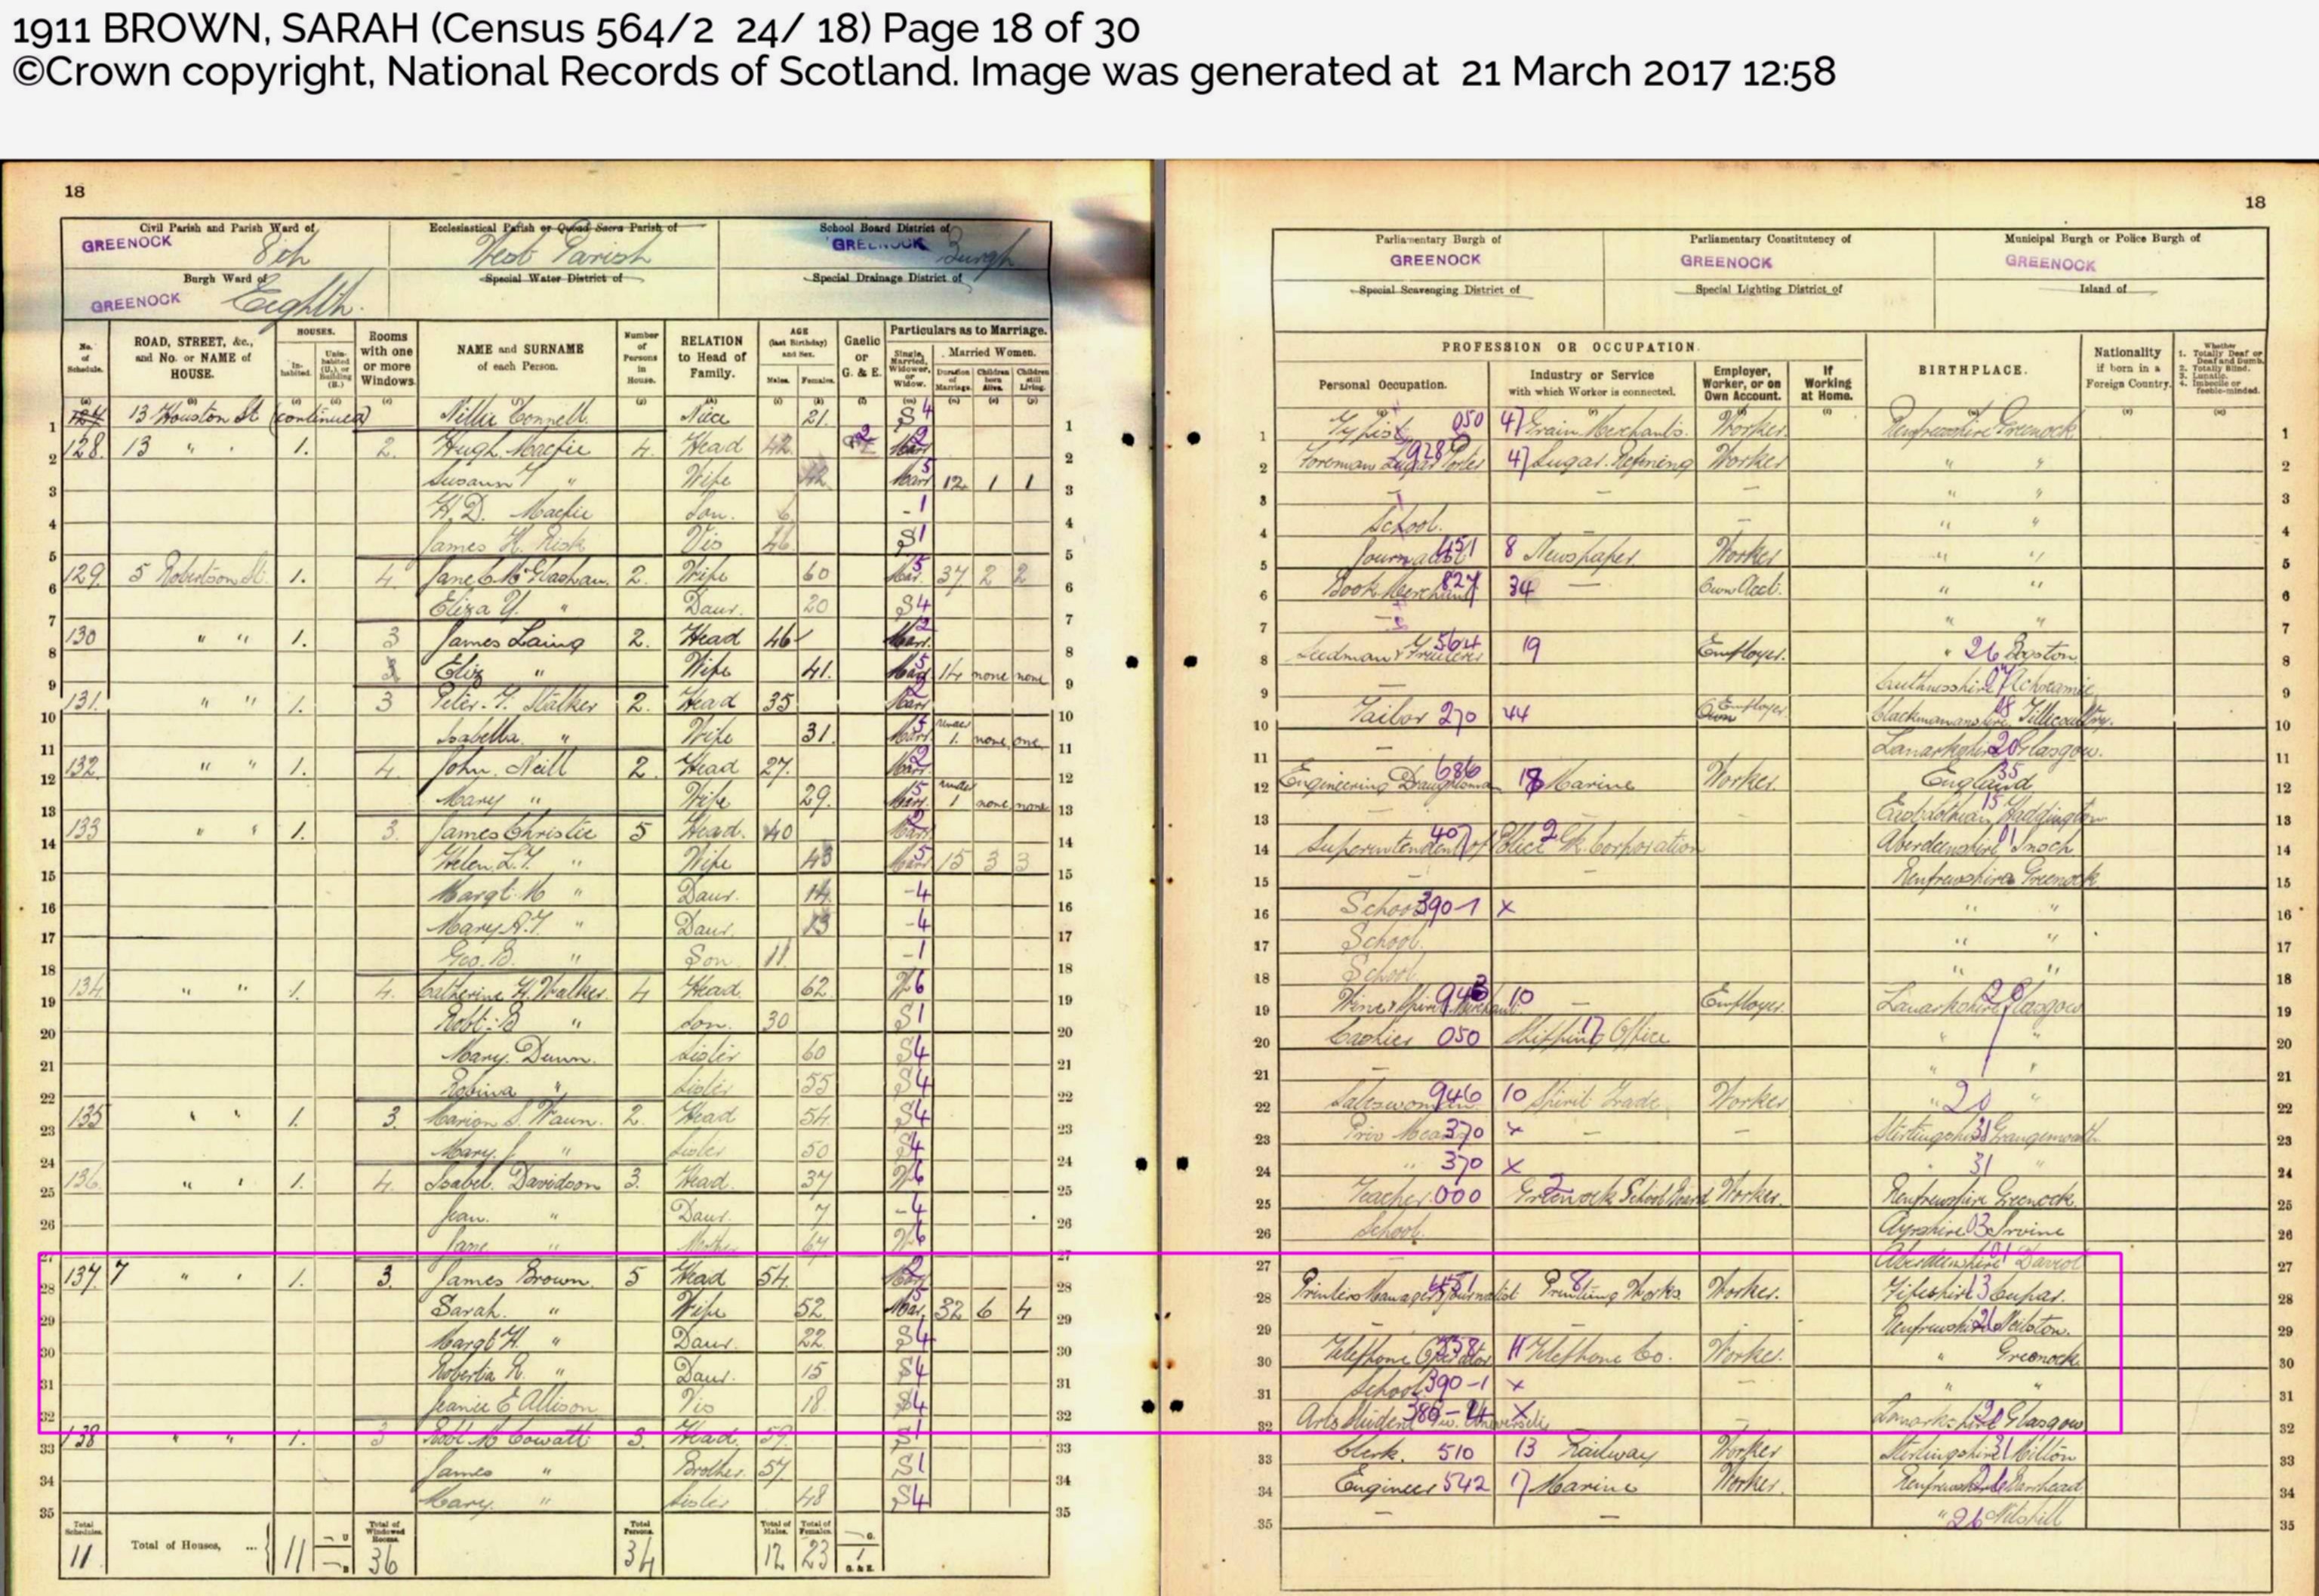 1911 BROWN, SARAH (Census 564/2 24/ 18) Page 18 of 30
©Crown copyright, National Records of Scotland. Image was generated at 21 March 2017 12:58
18
18
Civil Parish and Parish Ward of GREENOCK 8th
Ecclesiastical Parish or Quoad Sacra Parish of West Parish
School Board District of GREENOCK Burgh
Burgh Ward of GREENOCK Eighth.
Special Water District of
Special Drainage District of
Parliamentary Burgh of GREENOCK
Parliamentary Constitutency of GREENOCK
Municipal Burgh or Police Burgh of GREENOCK
Special Scavenging District of
Special Lighting District of
Island of
No. of Schedule.
ROAD, STREET, &c., and No. or NAME of HOUSE.
HOUSES. In-habited. Unin-habited (U.), or Building (B.)
Rooms with one or more Windows.
NAME and SURNAME of each Person.
Number of Persons in House.
RELATION to Head of Family.
AGE (last Birthday) and Sex. Males. Females.
Gaelic or G. & E.
Particulars as to Marriage.
Single, Married, Widower, or Widow.
Married Women. Duration of Marriage. Children born Alive. Children still Living.
PROFESSION OR OCCUPATION.
Personal Occupation.
Industry or Service with which Worker is connected.
Employer, Worker, or on Own Account.
If Working at Home.
BIRTHPLACE.
Nationality if born in a Foreign Country.
Whether 1. Totally Deaf or Deaf and Dumb. 2. Totally Blind. 3. Lunatic. 4. Imbecile or feeble-minded.
1 13 Houston St (continued) Nillie Connell Niece 21 S 4 Typist 050 47 Grain Merchants. Worker Renfrewshire Greenock
2 128. 13 " " 1. 2. Hugh Macfie 4. Head 42 Marr Foreman 47 Sugar Refining Worker " "
3 " Wife 42 Marr 12 1 1 — — — " "
4 H.D. Macfie Son. 6 - 1 School. — " "
5 James H. Risk Vis 46 S 1 Journalist 451 8 Newspaper Worker " "
6 129. 5 Robertson St. 1. 4. Jane C. McGlashan 2. Wife 60 Mar. 37 2 2 Book Merchant 827 34 — Own Acct. " "
7 Eliza Y. " Daur. 20 S 4 " "
8 130 " " 1. 3 James Laing 2. Head 46 Marr. 564 19 Employer. " 26
9 3 Eliz " Wife 41. Marr 14 none none —
10 131. " " 1. 3 Peter. Stalker 2. Head 35 Marr Tailor 270 44 Own Employer Clackmananshire Tillicoultry.
11 Isabella " Wife 31. Marr under 1. none one — Lanarkshire 20 Glasgow.
12 132. " " 1. 4. John Neill 2. Head 27. Marr. Engineering Draughtsman 686 18 Marine Worker. England 35
13 Mary " Wife 29. Marr. under 1 none none East Lothian 15 Haddington
14 133 " " 1. 3. James Christie 5 Head. 40 Marr Superintendent of Police 407 2 Gk. Corporation Aberdeenshire 01
15 Helen L.Y. " Wife 43 Marr 15 3 3 — — Renfrewshire Greenock
16 Margt. M " Daur. 14 -4 School 390-1 x " "
17 " Daur. 13 -4 School. " "
18 Geo. B. " Son 11. -1 School " "
19 134. " " 1. 4. Catherine H. Walker. 4 Head 62 W 6 Wine & Spirit Merchant 943 10 — Employer Lanarkshire 20 Glasgow
20 Robt. B " Son. 30 S1 Cashier 050 17 Shipping Office " "
21 Mary Dunn. Sister 60 S4 " "
22 Robina " Sister 55 S4 Saleswoman 946 10 Spirit Trade Worker " 20 "
23 135 " " 1. 3. Marion S. 2. Head 54. S4 Priv Means 370 x — — Stirlingshire 31 Grangemouth
24 Mary. " Sister 50 S4 " 370 x " 31 "
25 136. " " 1. 4. Isabel. Davidson 3. Head. 37 W6 Teacher 000 2 Greenock School Board Worker. Renfrewshire Greenock
26 Jean. " Daur. 7 -4 School Ayrshire 03 Irvine
27 Jane " Mother 67 W6 — Aberdeenshire 01 Daviot
28 137. 7 " " 1. 3. James Brown. 5 Head 54. Marr Printers Manager & Journalist 451 8 Printing Works Worker. Fifeshire 13 Cupar.
29 Sarah. " Wife 52 Mar. 32 6 4 — Renfrewshire 26 Neilston.
30 Margt H. " Daur. 22 S4 Telephone Operator 338 11 Telephone Co. Worker. " Greenock
31 Roberta R. " Daur. 15 S4 School 390-1 x — " "
32 Jeanie E Allison Vis 18 S4 Arts Student 380-4 x University — Lanarkshire 20 Glasgow
33 138 " " 1. 3 Robt McCowatt 3. Head 59. S1 Clerk. 510 13 Railway Worker Stirlingshire 31 Milton
34 James " Brother 57 S1 Engineer 542 17 Marine Worker. Renfrewshire 26 Barrhead
35 Mary. " Sister 48 S4 — — " 26 Nitshill
Total Schedules. 11
Total of Houses, ... 11 — U — B
Total of Windowed Rooms. 36
Total Persons. 34
Total of Males. 12
Total of Females. 23
— G. 1 G.&E.